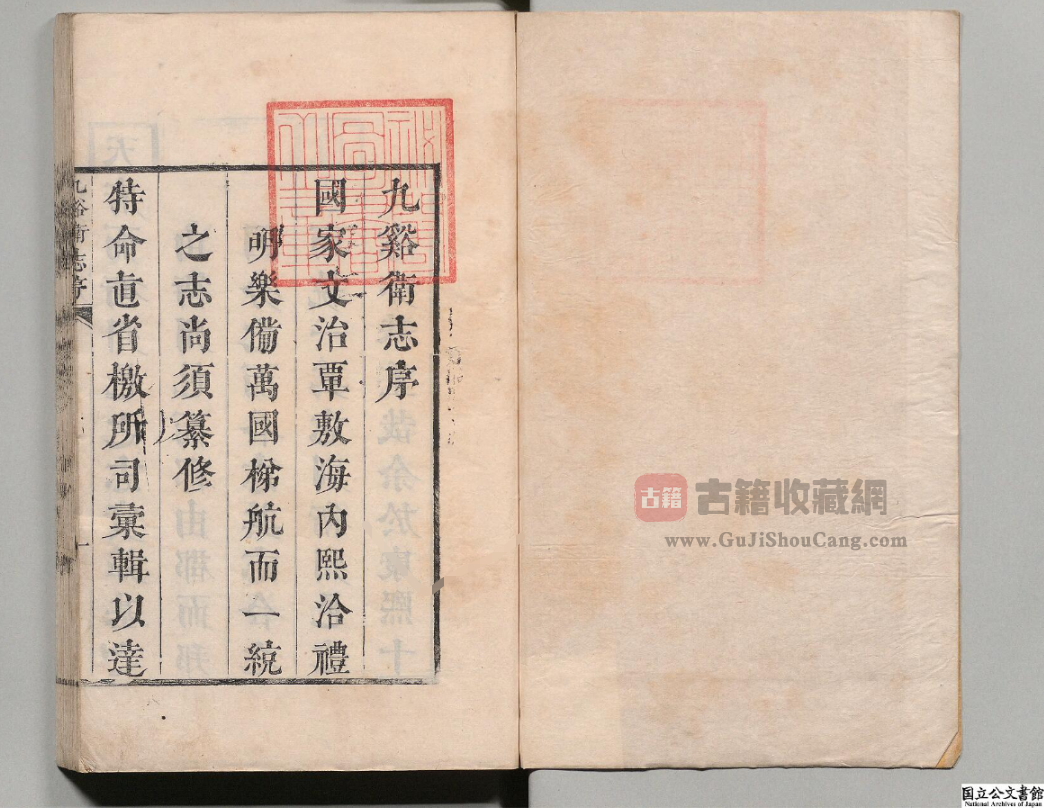 九谿衛志序
國家文治覃敷海内熙洽禮
明樂備萬國梯航而一統
之志尚須纂修
特命直省檄所司彙輯以達
九谿衛志序
一
古籍
古籍收藏網
www.GuJiShouCang.com
国立公文書館
National Archives of Japan